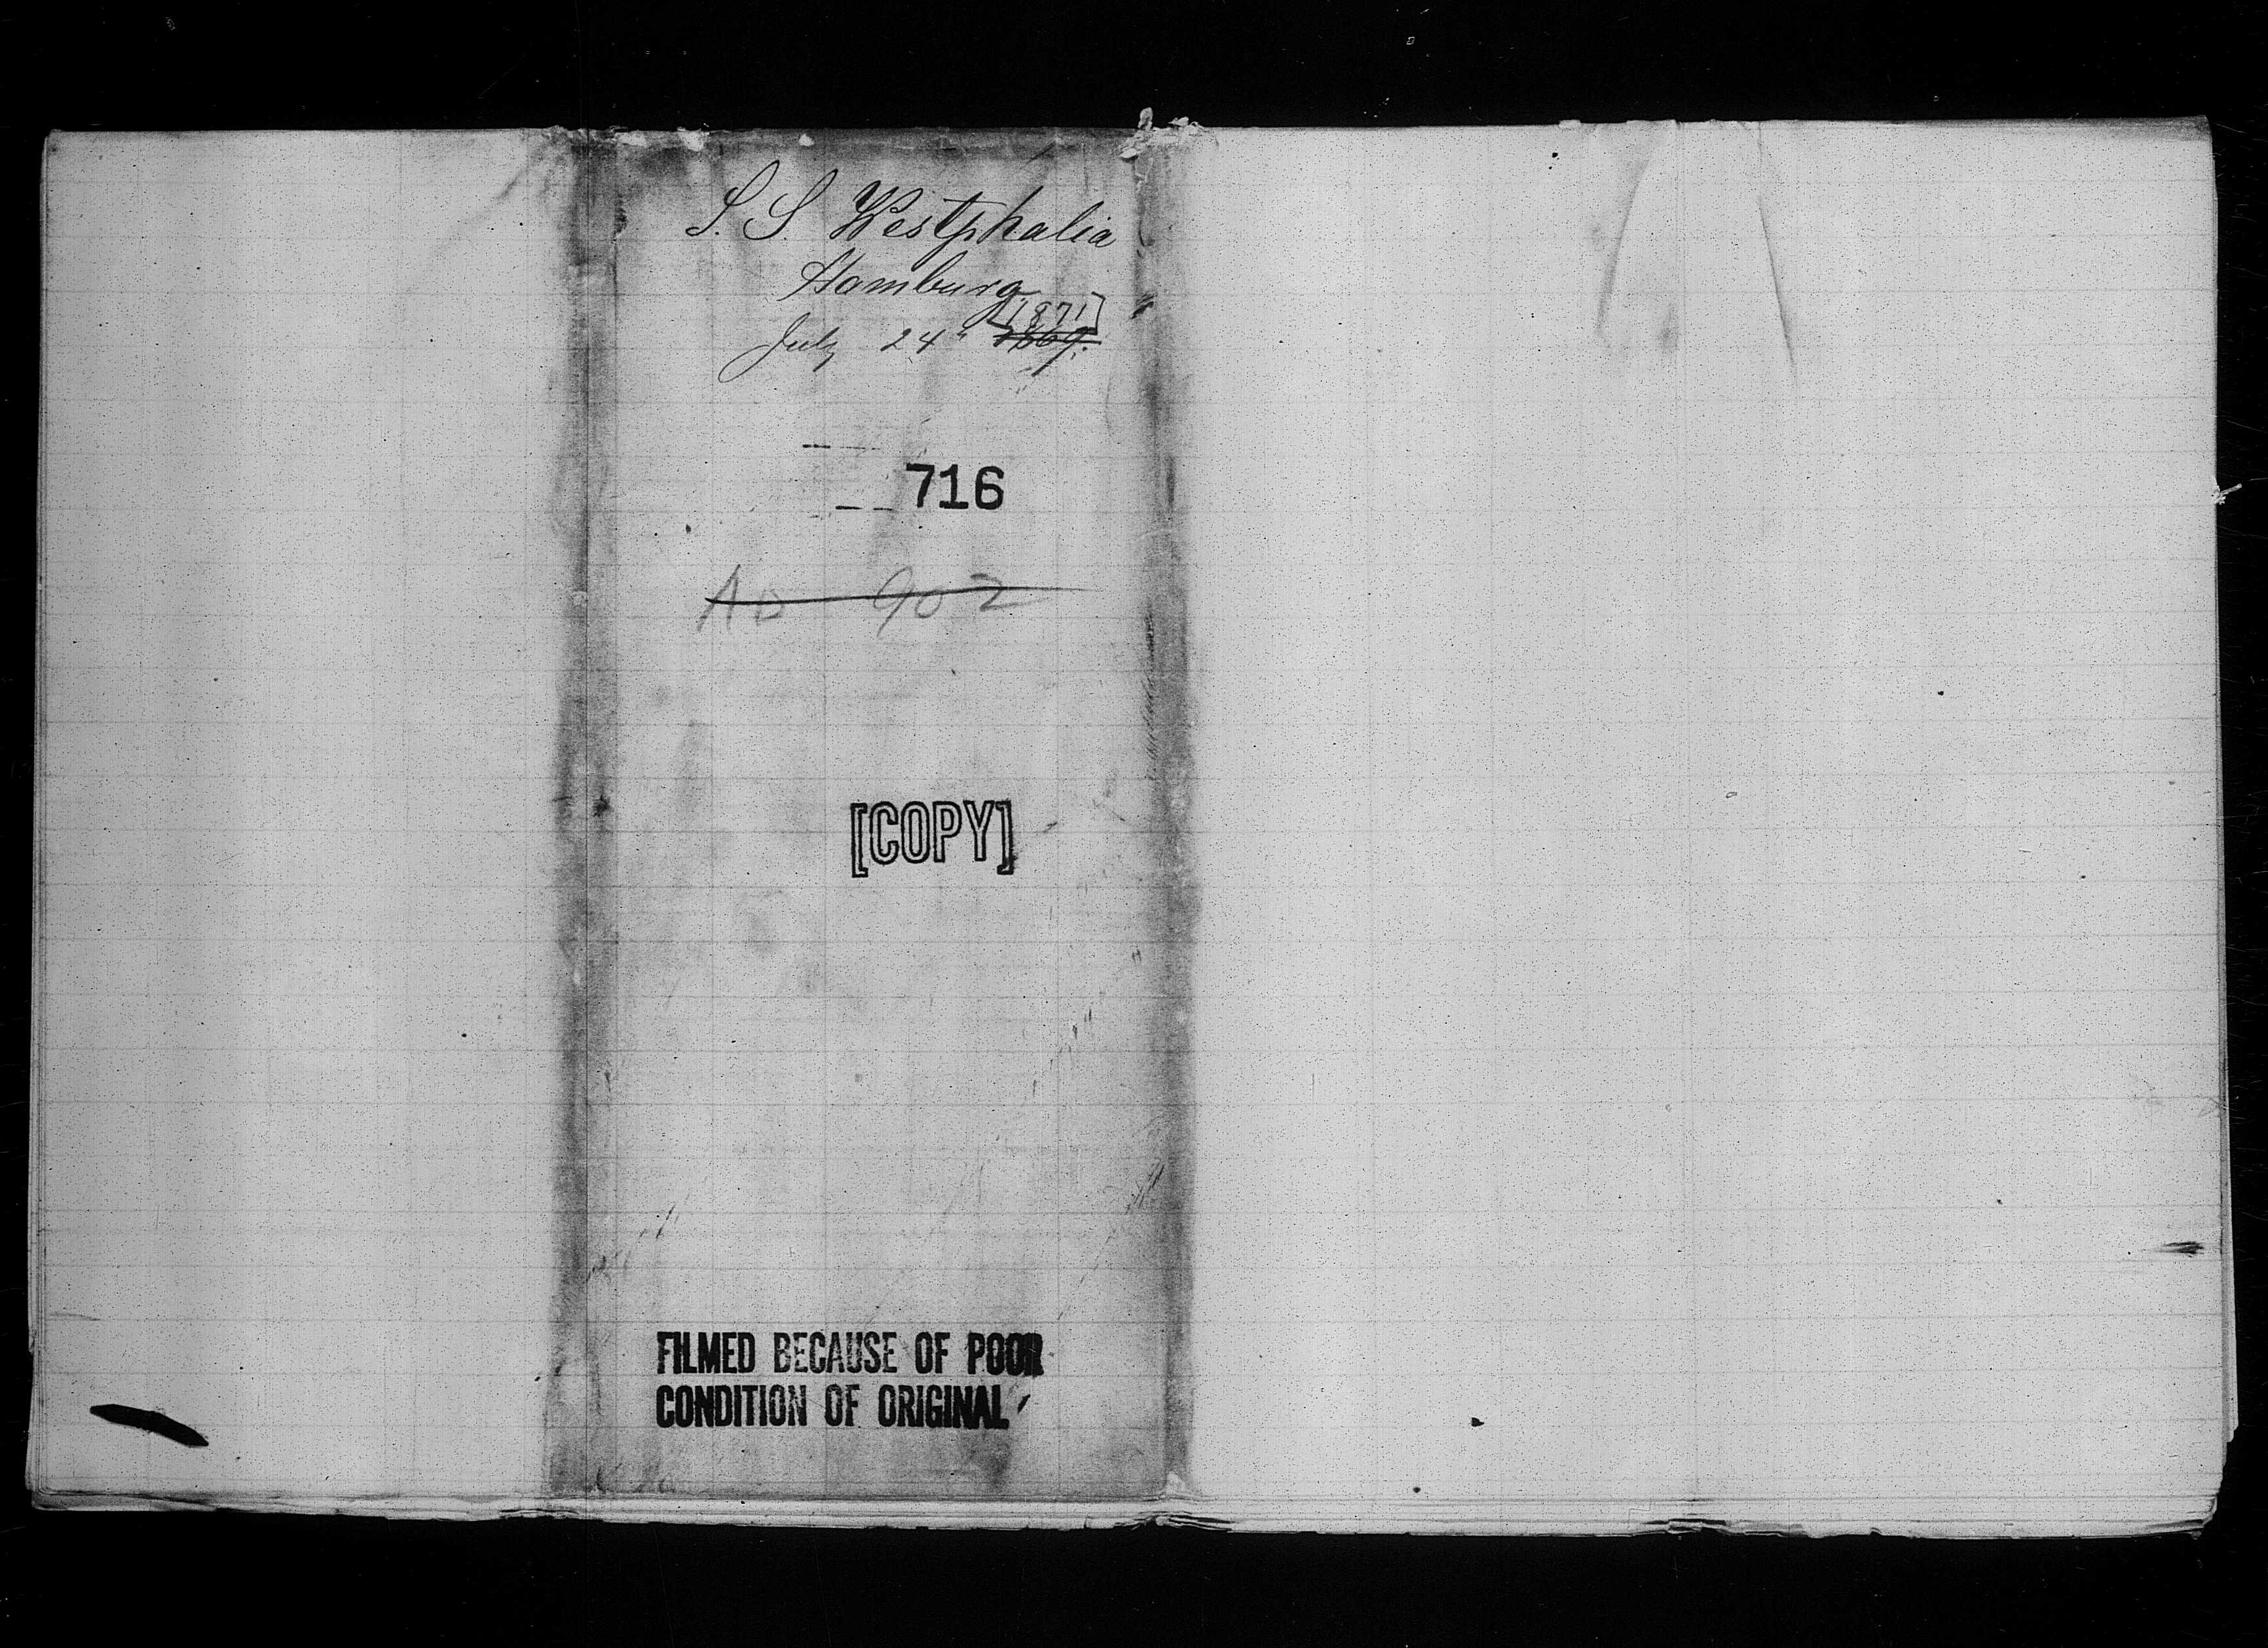 S. S. Westphalia
Hamburg
[1871]
July 24" 1869.
716
AD 902
[COPY]
FILMED BECAUSE OF POOR
CONDITION OF ORIGINAL